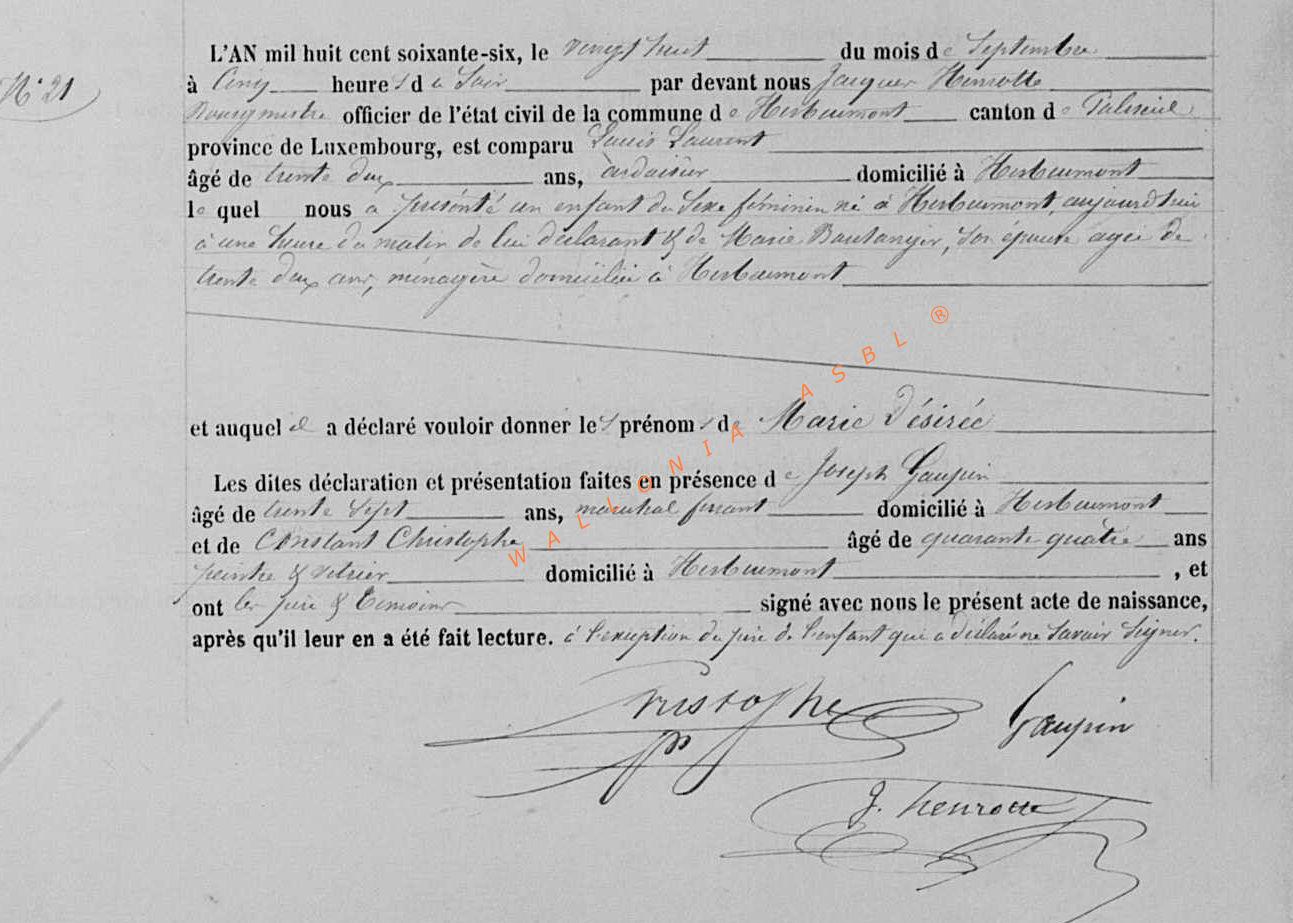 N° 21
L'AN mil huit cent soixante-six, le vingt huit du mois de Septembre
à Cinq heures du Soir par devant nous Jacques Henrotte
Bourgmestre officier de l'état civil de la commune de Herbeumont canton de Paliseul
province de Luxembourg, est comparu Louis Laurent
âgé de trente deux ans, ardoisier domicilié à Herbeumont
le quel nous a présenté un enfant du Sexe féminin né à Herbeumont, aujourd'hui
à une heure du matin de lui déclarant & de Marie Boulanger, son épouse agée de
trente deux ans, ménagère domiciliée à Herbeumont
et auquel il a déclaré vouloir donner les prénoms de Marie Désirée
Les dites déclaration et présentation faites en présence de Joseph Gaupin
âgé de trente Sept ans, maréchal ferrant domicilié à Herbeumont
et de Constant Christophe âgé de quarante quatre ans
peintre & vitrier domicilié à Herbeumont , et
ont les père & témoins signé avec nous le présent acte de naissance,
après qu'il leur en a été fait lecture. à l'exception du père de l'enfant qui a déclaré ne savoir Signer.
Cristophe Gaupin
J. henrotte
WALLONIA ASBL ®